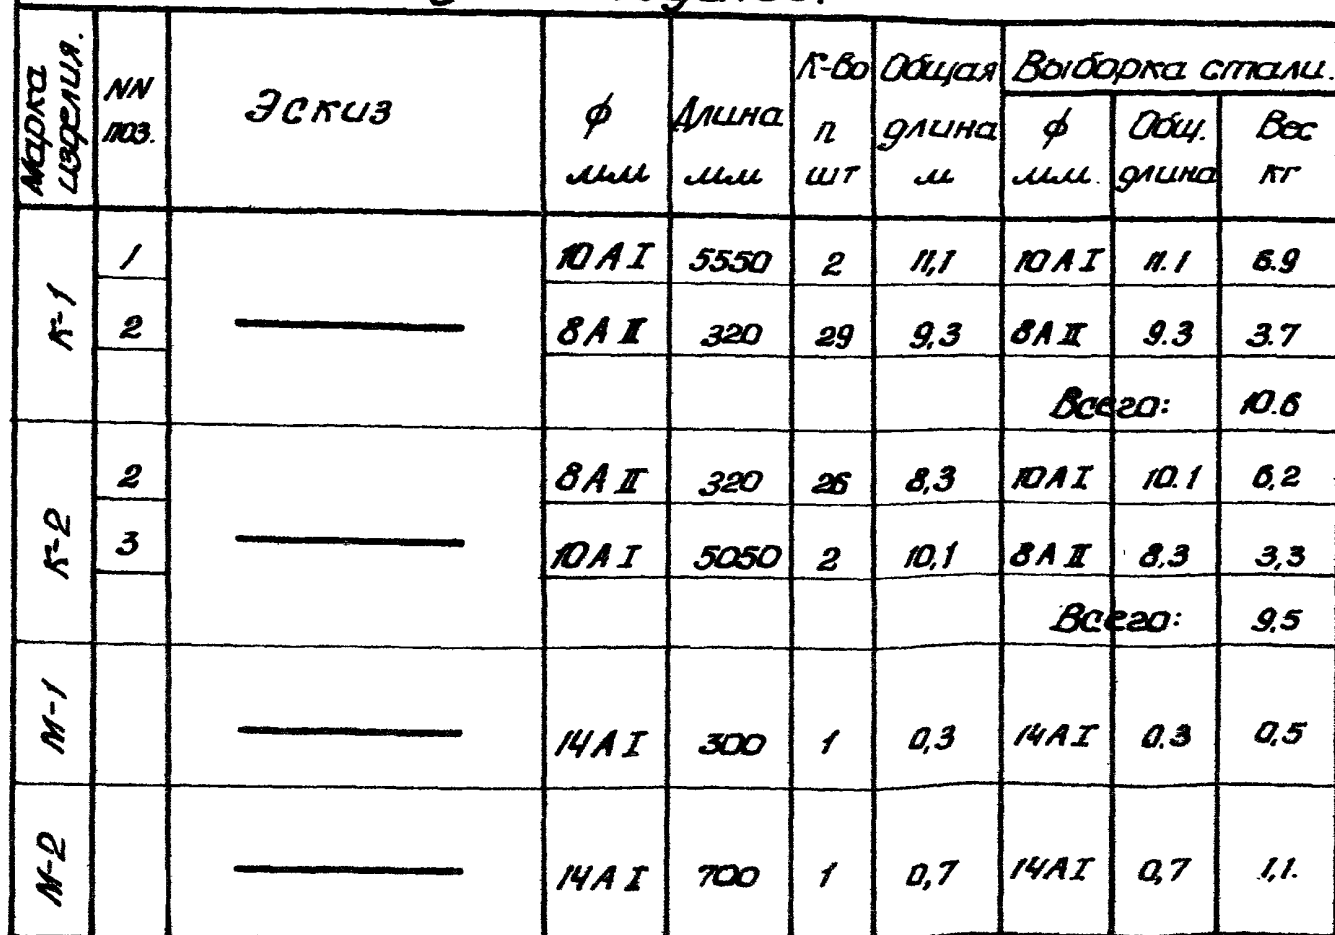 Марка изделия. NN поз. Эскиз ϕ мм Длина мм К-во п шт Общая длина м Выборка стали.
ϕ мм. Общ. длина Вес кг
К-1 1 10 А I 5550 2 11,1 10 А I 11.1 6.9
2 8 А II 320 29 9,3 8 А II 9.3 3.7
Всего: 10.6
К-2 2 8 А II 320 26 8,3 10 А I 10.1 6,2
3 10 А I 5050 2 10,1 8 А II 8.3 3,3
Всего: 9.5
М-1 14 А I 300 1 0,3 14 А I 0.3 0,5
М-2 14 А I 700 1 0,7 14 А I 0,7 1,1.